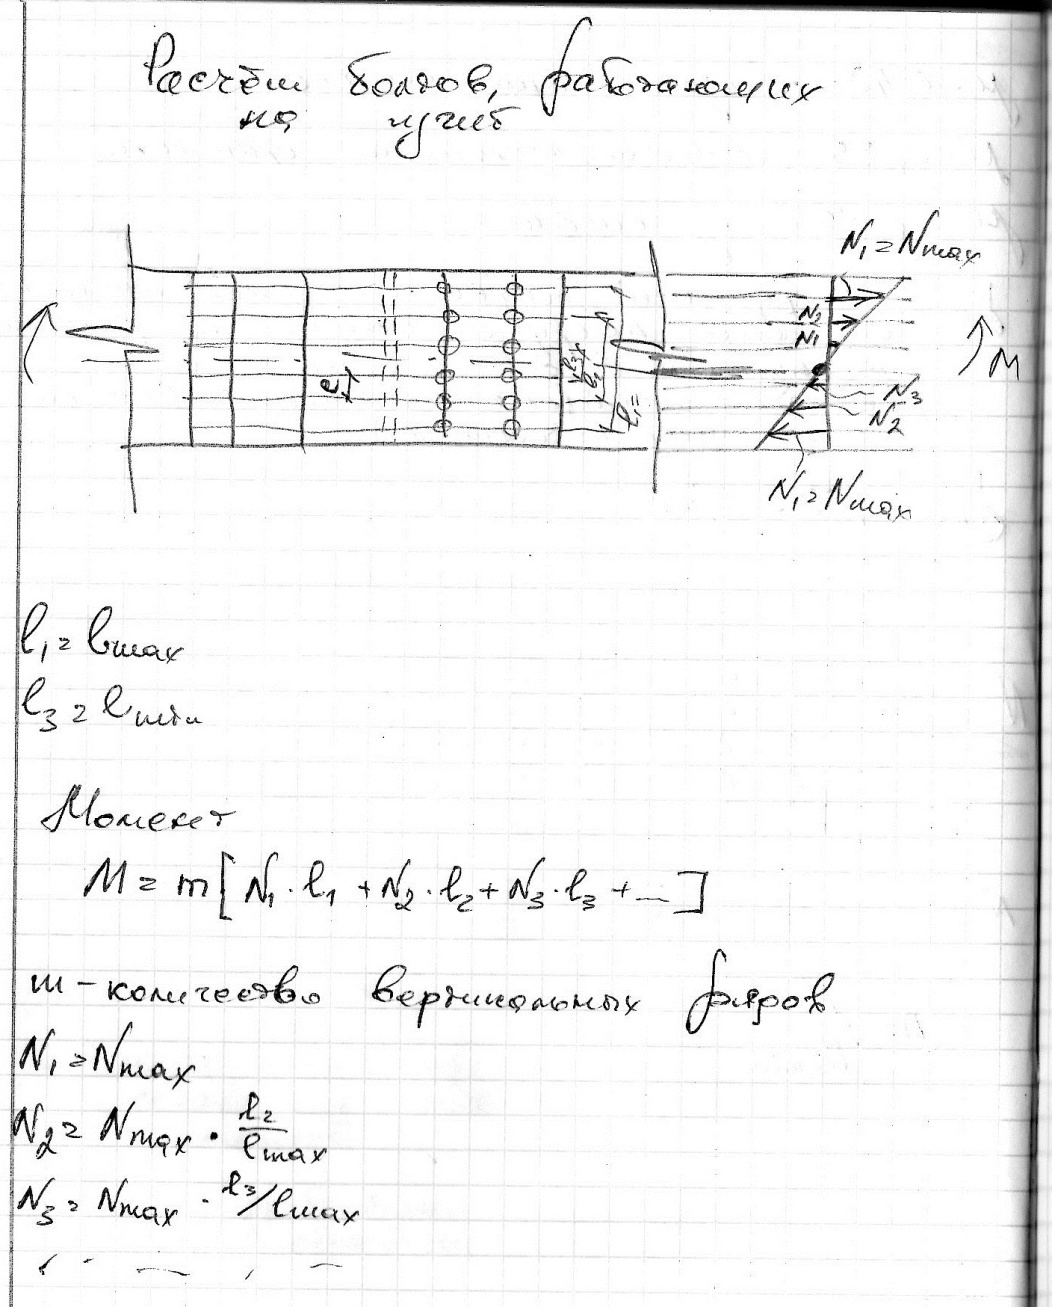 Расчёт болтов, работающих
на изгиб
N₁ = Nmax
N₂
N₁
M
e
l₃
l₂
l₁ =
N₃
N₂
N₁ = Nmax
l₁ = lmax
l₃ = lmin
Момент
M = m[N₁·l₁ + N₂·l₂ + N₃·l₃ + ...]
m - количество вертикальных рядов
N₁ = Nmax
N₂ = Nmax · l₂/lmax
N₃ = Nmax · l₃/lmax